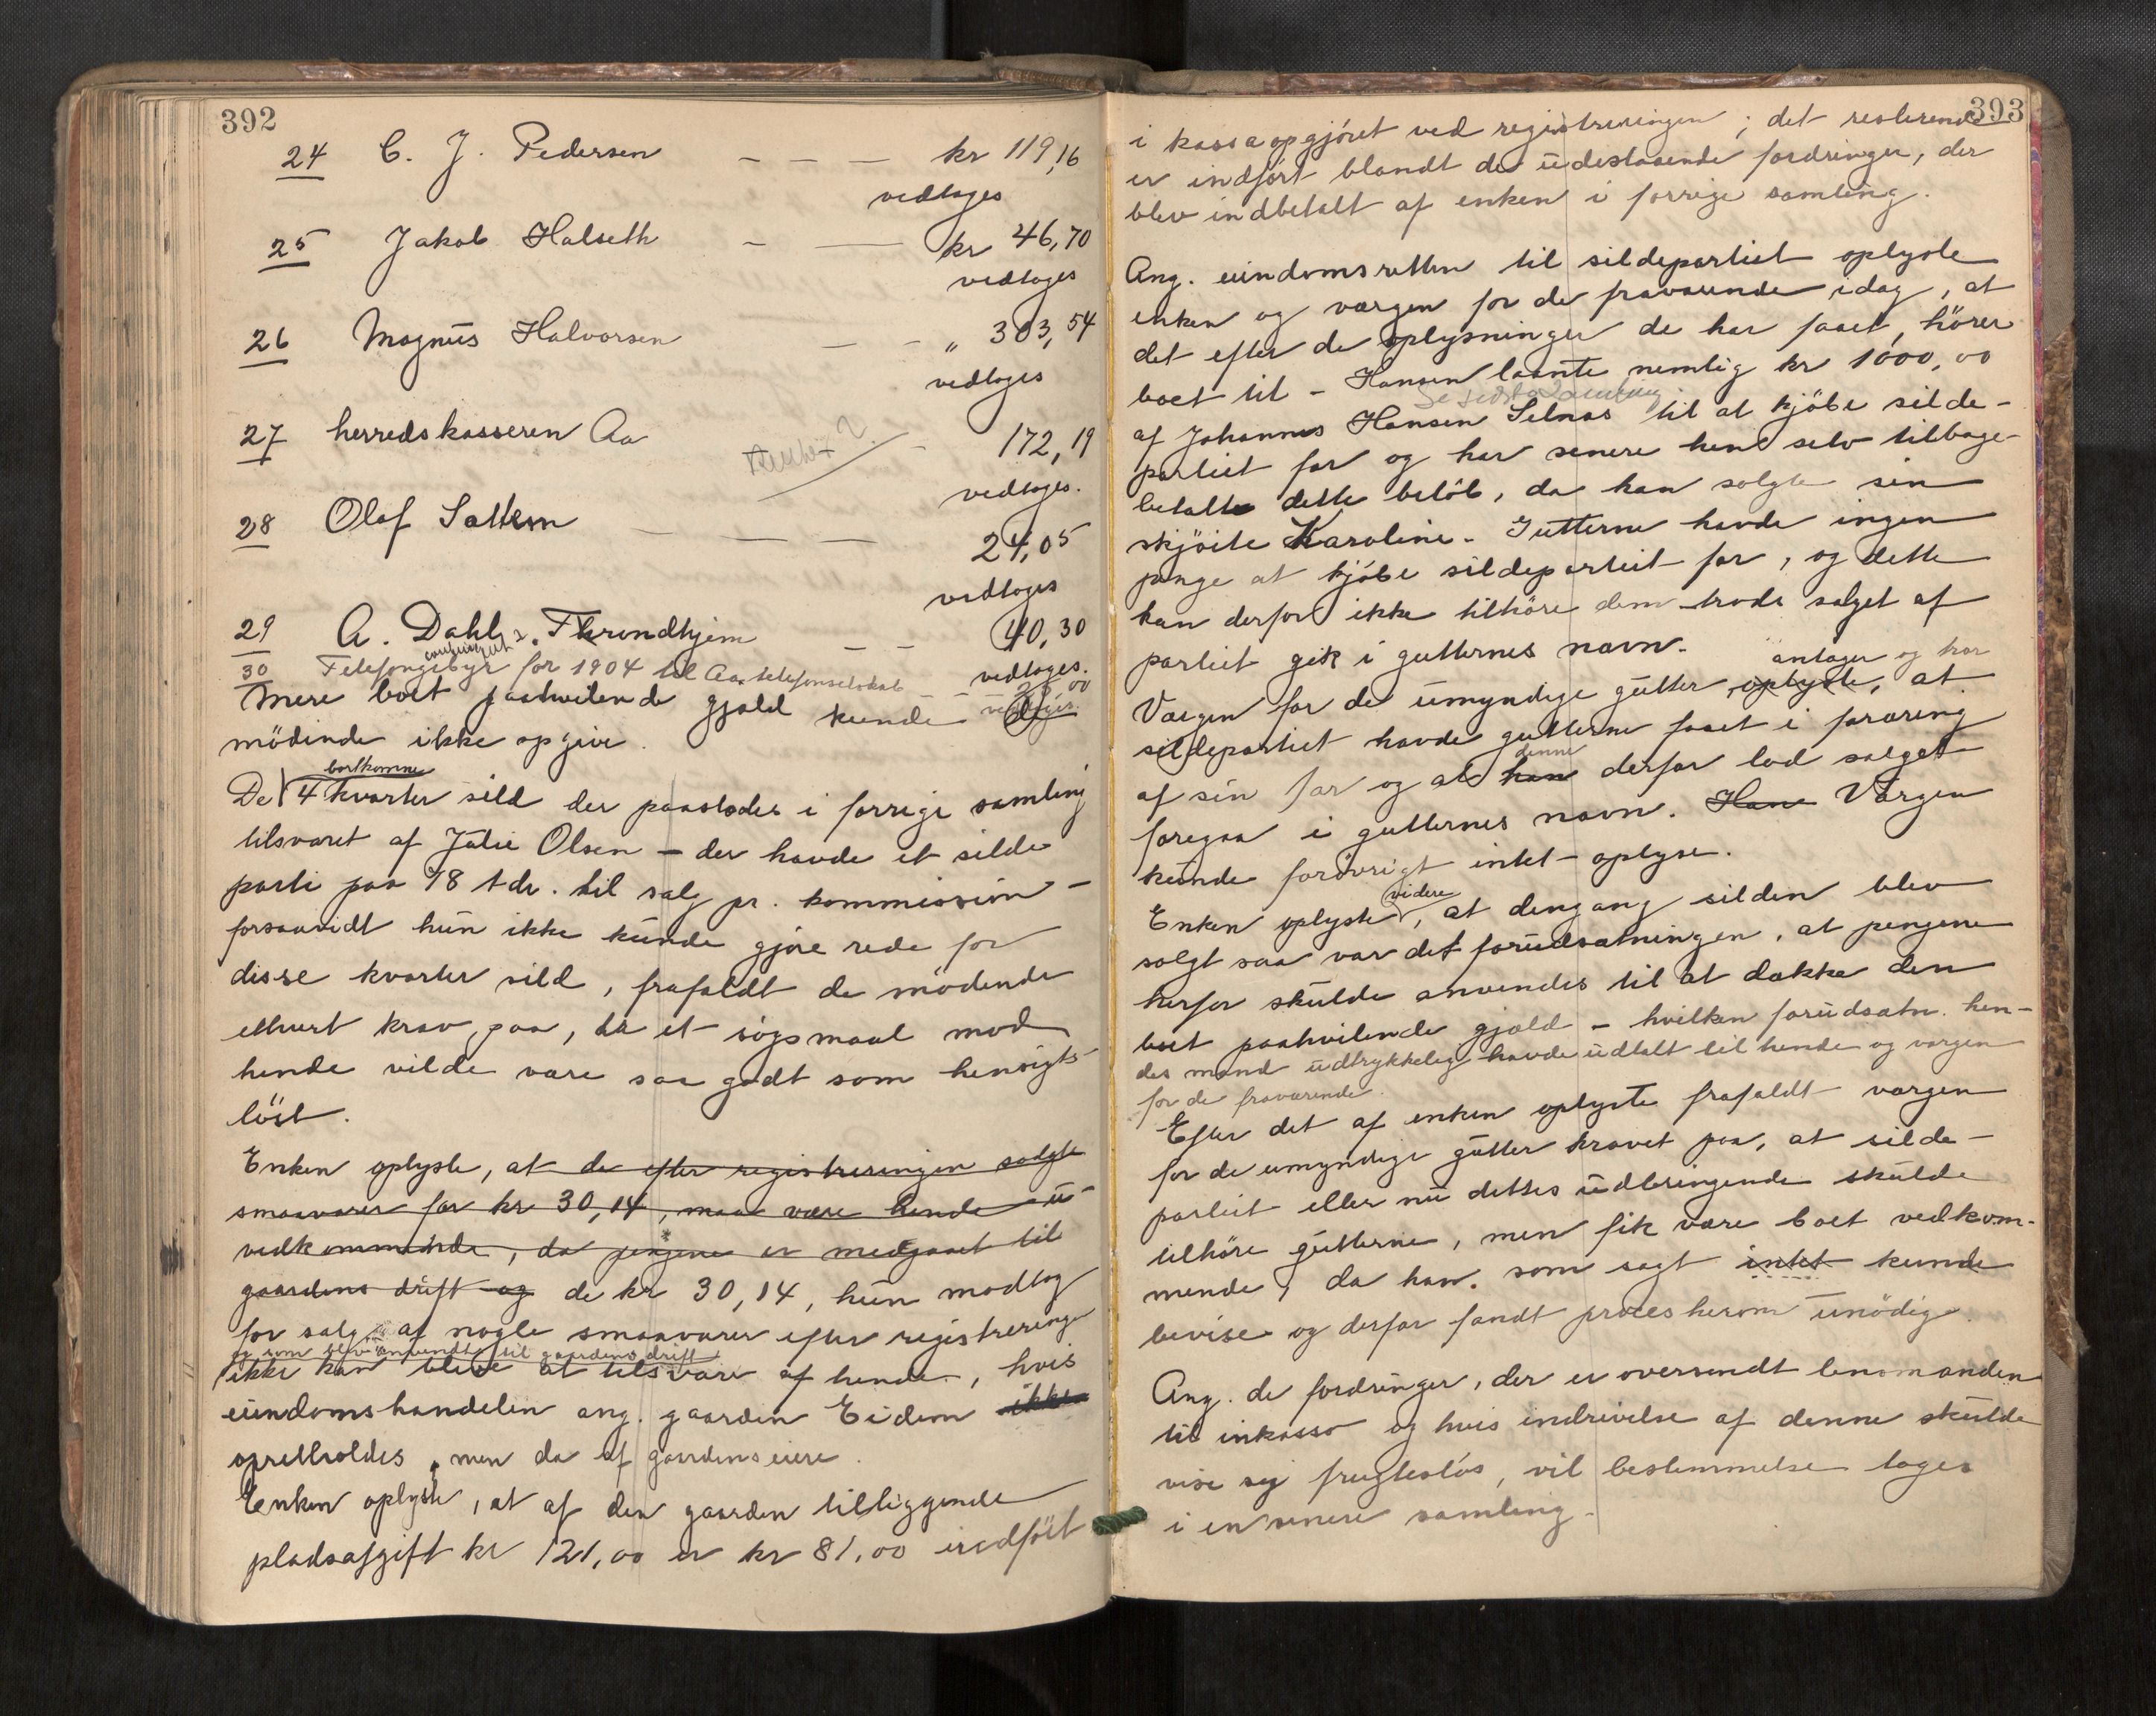 392
24 C. J. Pedersen — — — kr 119,16
vedtages
25 Jakob Halseth — — kr 46,70
vedtages
26 Magnus Halvorsen — - „ 303,54
vedtages
27 herredskasseren Aa - 172,19
vedtages.
28 Olaf Sattem — — — 24,05
vedtages
29 A. Dahl, Throndhjem — — 40,30
vedtages.
30 Telefongebyr for 1904 til Aa telefonselskab
vedtages.
Mere boet paahvilende gjæld kunde de
mödende ikke opgive.
bortkomne
De 4 kvarter sild der paastodes i forrige samling
tilsvaret af Julie Olsen – der havde et silde
parti paa 18 tdr. til salg pr. kommission –
forsaavidt hun ikke kunde gjöre rede for
disse kvarter sild, frafaldt de mödende
ethvert krav paa, da et sögsmaal mod
hende vilde være saa godt som hensigts-
löst.
Enken oplyste, at de efter registreringen solgte
smaavarer for kr 30,14, maa være hende u-
vedkommende, da pengene er medgaaet til
gaardens drift og de kr 30,14, hun modtog
for salg af nogle smaavarer efter registrering
og som blev anvendt til gaardens drift
ikke kan blive at tilsvare af hende, hvis
eiendomshandelen ang. gaarden Eidem ikke
opretholdes, men da af gaardens eiere.
Enken oplyste, at af den gaarden tilliggende
pladsafgift kr 121,00 er kr 81,00 indfört
393
i kassaopgjöret ved registreringen; det resterende
er indfört blandt de udestaaende fordringer, der
blev indbetalt af enken i forrige samling.
Ang. eiendomsretten til sildepartiet oplyste
enken og værgen for de fraværende idag, at
det efter de oplysninger de har faaet, hörer
boet til – Hansen laante nemlig kr 1000,00
se sidste samling
af Johannes Hansen Selnæs til at kjöbe silde-
partiet for og har senere hen selv tilbage-
betalt dette belöb, da han solgte sin
skjöite Karoline. Gutterne havde ingen
penge at kjöbe sildepartiet for, og dette
kan derfor ikke tilhöre dem trods salget af
partiet gik i gutternes navn.
antager og har
Værgen for de umyndige gutter oplyste, at
sildepartiet havde gutterne faaet i foræring
denne
af sin far og at han derfor lod salget
foregaa i gutternes navn. Hane Værgen
kunde forövrigt intet oplyse.
videre
Enken oplyste, at dengang silden blev
solgt saa var det forudsætningen, at pengene
herfor skulde anvendes til at dække den
boet paahvilende gjæld – hvilken forudsætn. hen-
des mand udtrykkelig havde udtalt til hende og værgen
for de fraværende.
Efter det af enken oplyste frafaldt værgen
for de umyndige gutter kravet paa, at silde-
partiet eller nu dettes udbringende skulde
tilhöre gutterne, men fik være boet vedkom-
mende, da han som sagt intet kunde
bevise og derfor fandt proces herom unödig.
Ang. de fordringer, der er oversendt lensmanden
til inkasso og hvis inddrivelse af denne skulde
vise sig frugteslös, vil bestemmelse tages
i en senere samling.